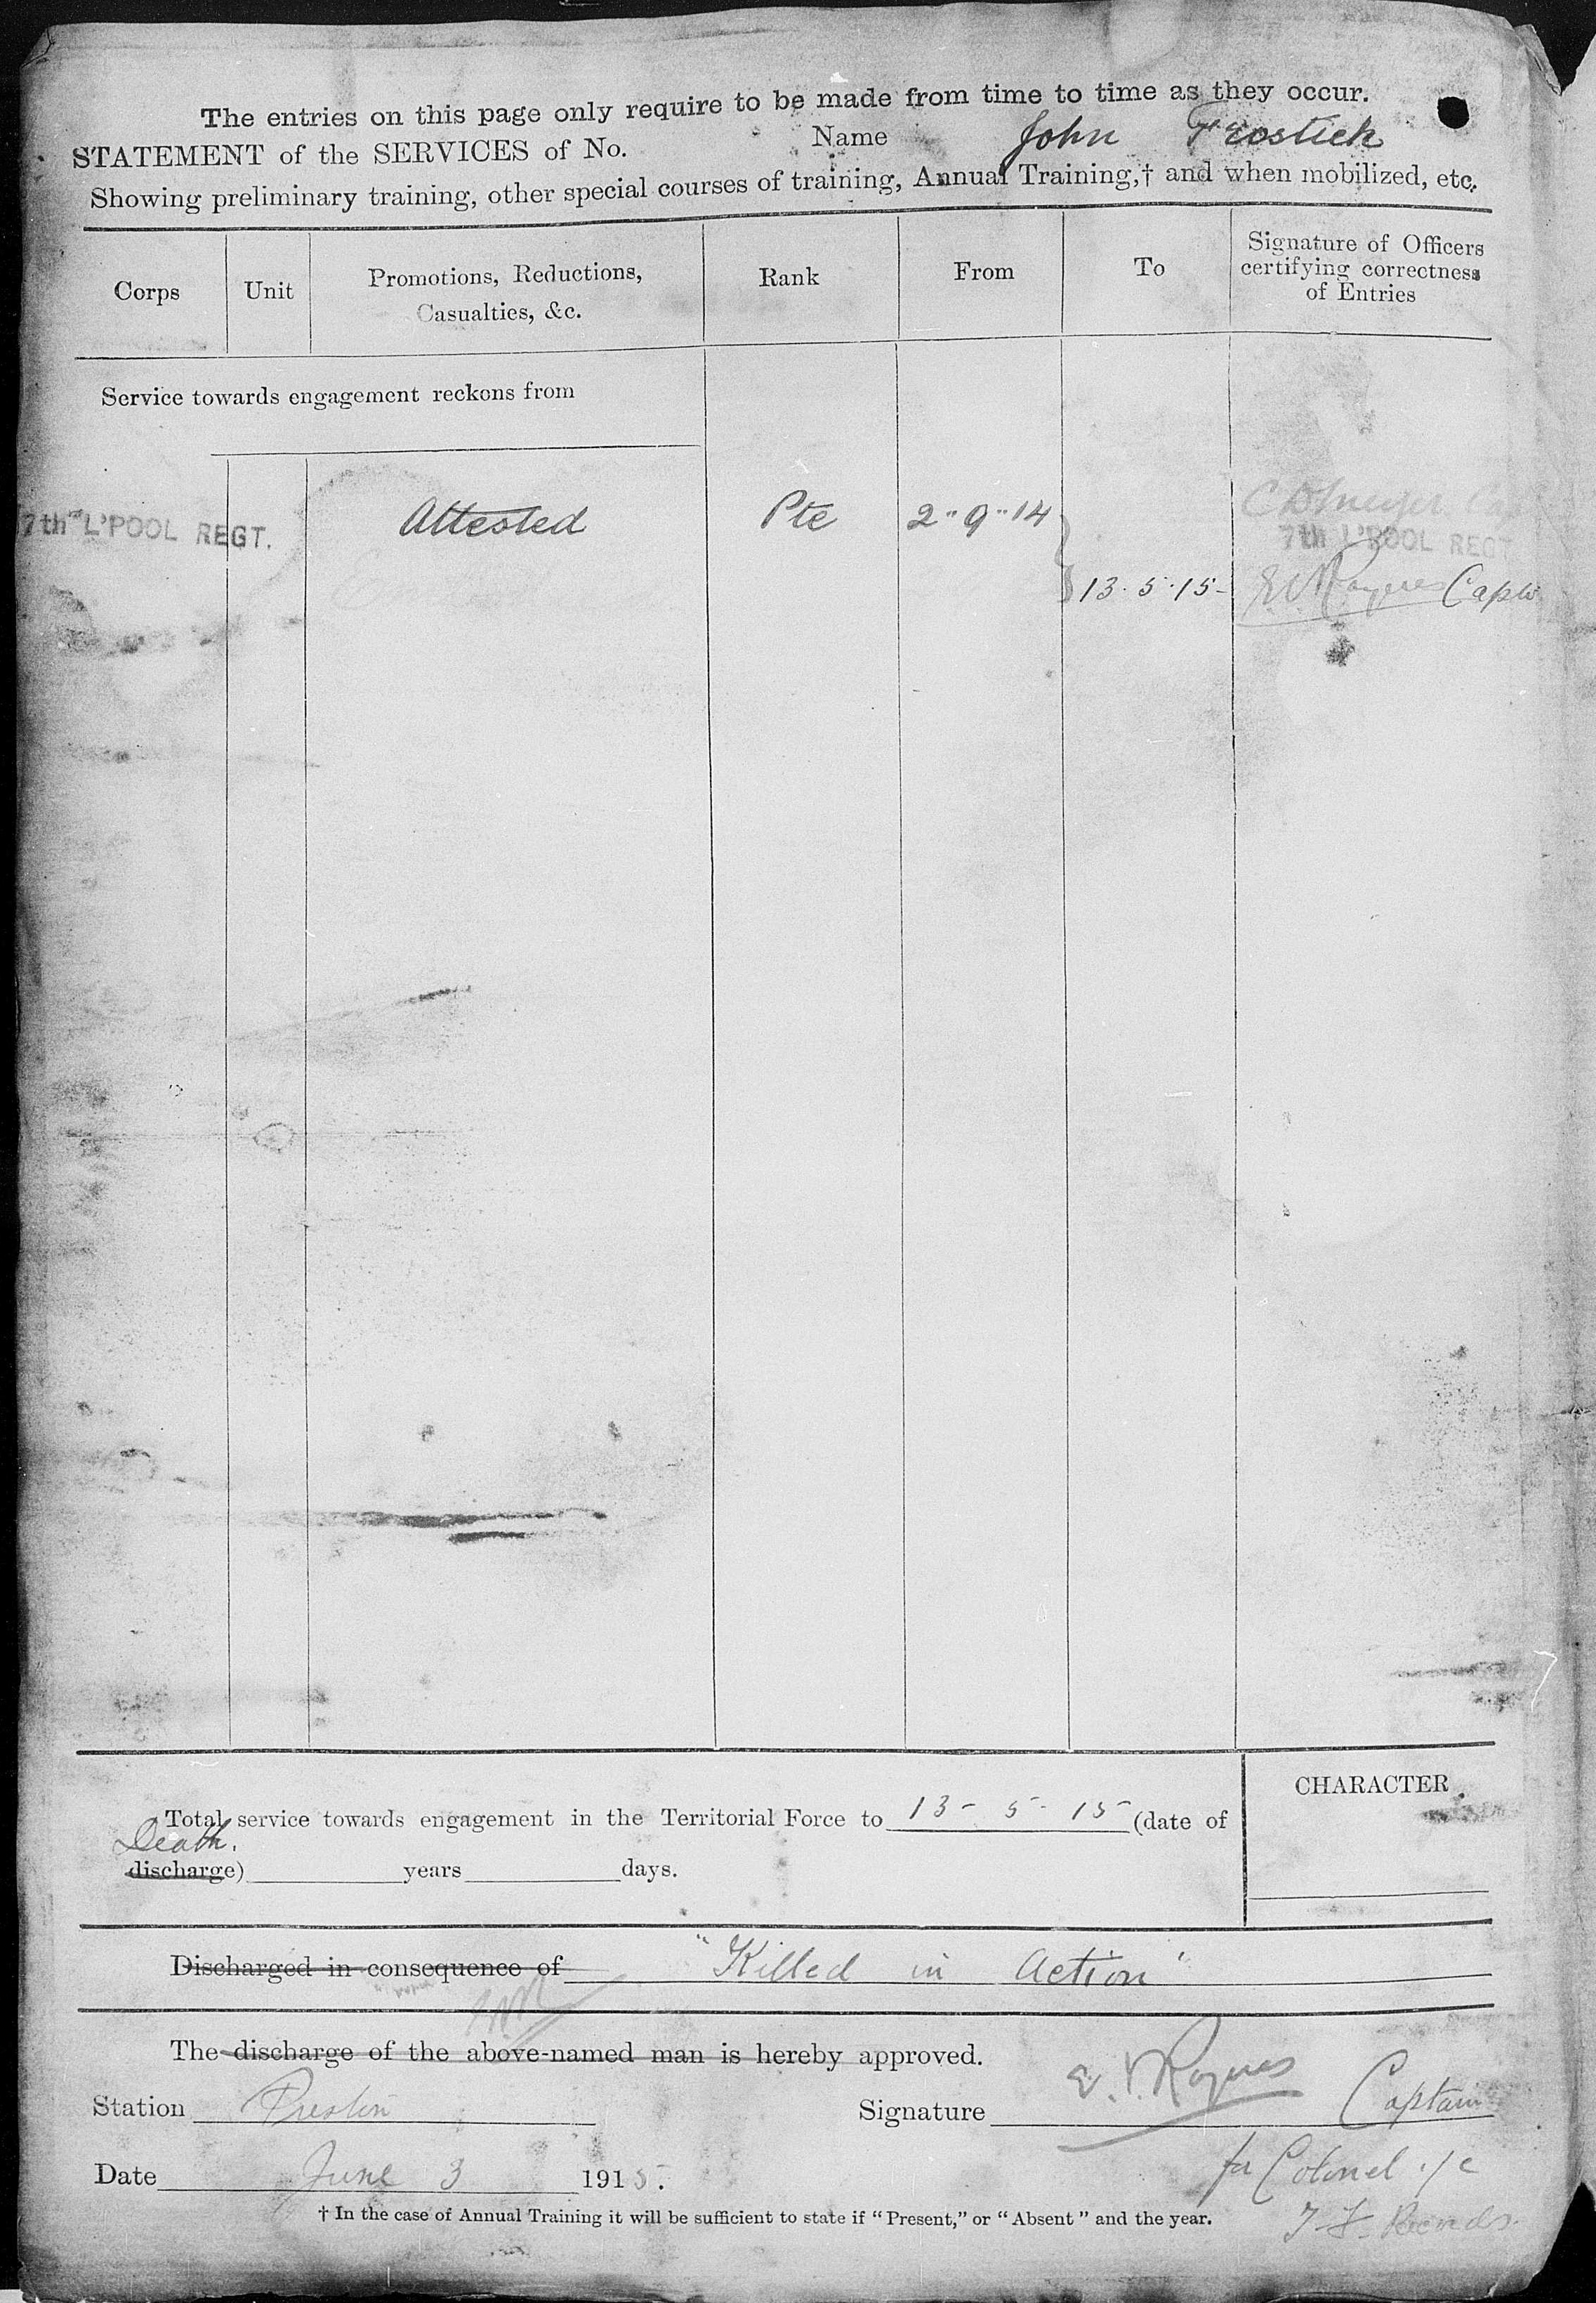 The entries on this page only require to be made from time to time as they occur.
STATEMENT of the SERVICES of No. Name John Frostick
Showing preliminary training, other special courses of training, Annual Training,† and when mobilized, etc.
Corps Unit Promotions, Reductions, Casualties, &c. Rank From To Signature of Officers certifying correctness of Entries
Service towards engagement reckons from
7th L'POOL REGT. Attested Pte 2"9"14
7th L'POOL REGT
13.5.15 Capt
CHARACTER
Total service towards engagement in the Territorial Force to 13-5-15 (date of
Death.
discharge) years days.
Discharged in consequence of "Killed in Action"
The discharge of the above-named man is hereby approved.
Station Preston Signature E. V. Captain
Date June 3 1915. for Colonel i/c
T.F. Records.
† In the case of Annual Training it will be sufficient to state if "Present," or "Absent" and the year.